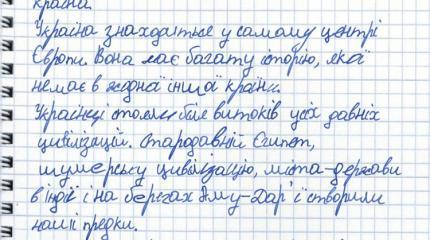 країна.
Україна знаходиться у самому центрі
Європи. Вона має багату історію, якої
немає в жодна інша країна.
Українці стояли біля витоків усіх давніх
цивілізацій. Стародавній Єгипет,
шумерську цивілізацію, міста-держави
в індії і на берегах Аму-Дар'ї створили
наші предки.